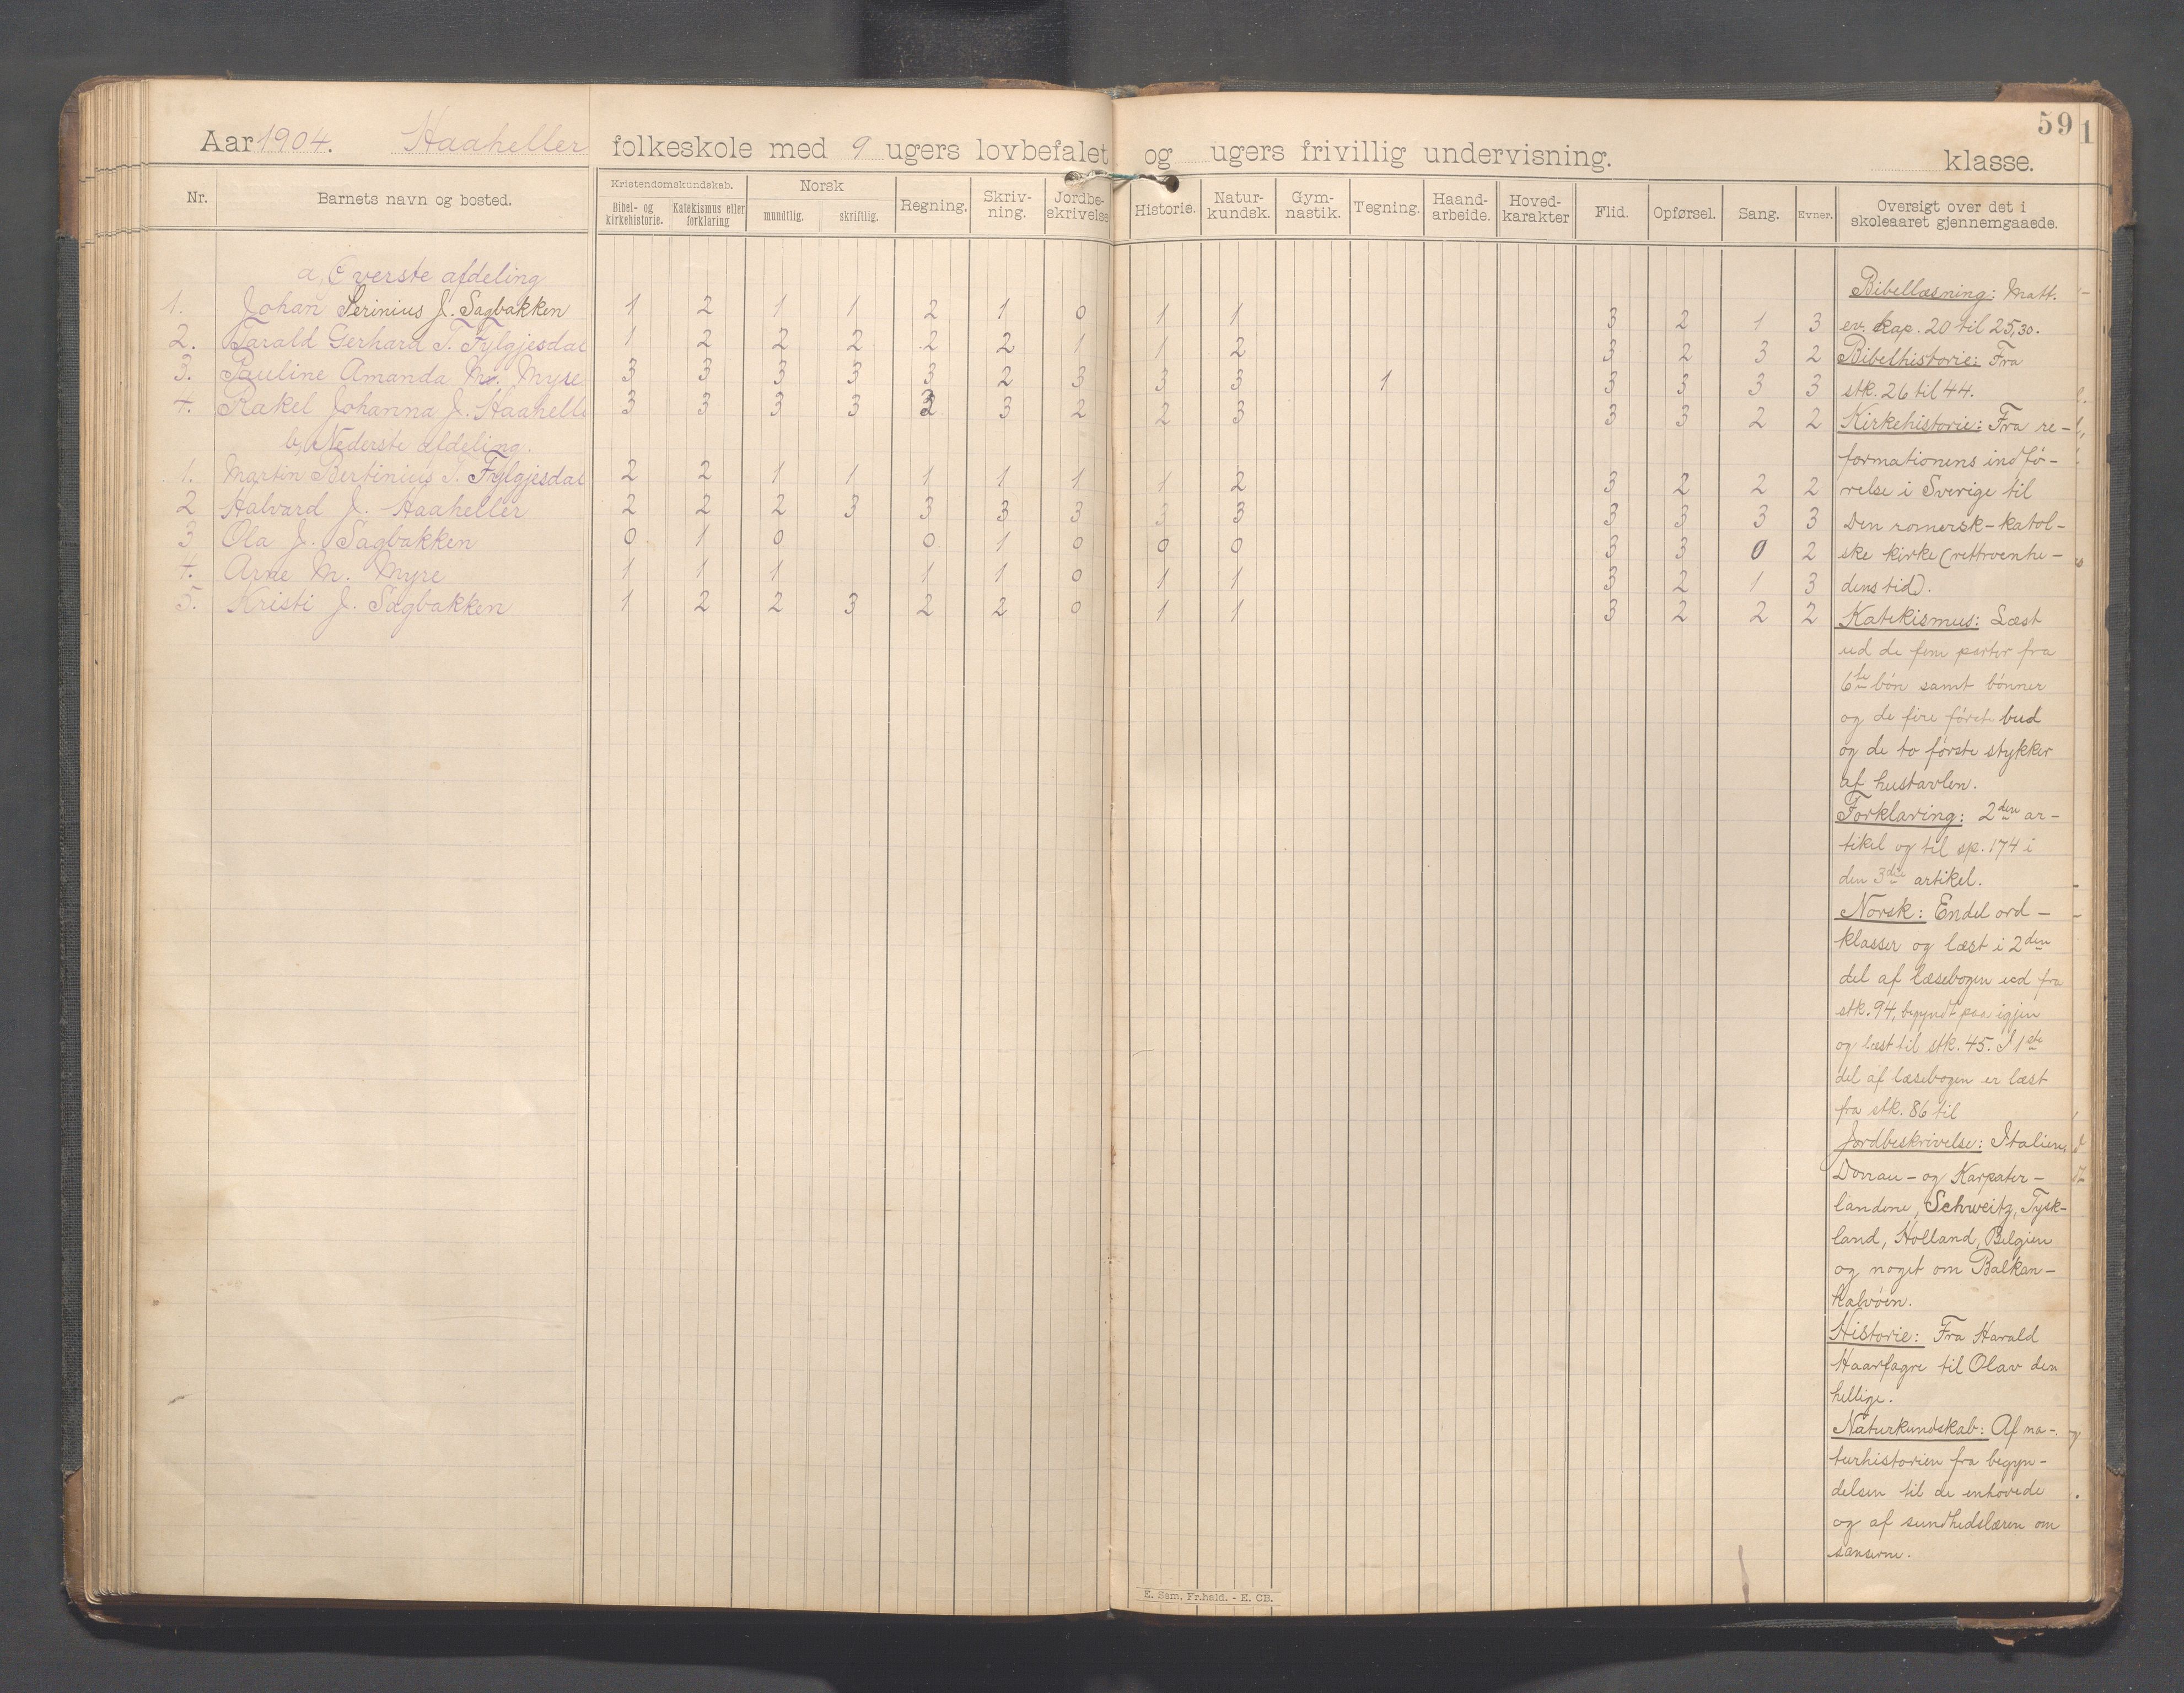 59 1
Aar 1904. Haaheller folkeskole med 9 ugers lovbefalet og ugers frivillig undervisning. klasse.
Nr. Barnets navn og bosted. Kristendomskundskab. Bibel- og kirkehistorie. Katekismus eller forklaring Norsk mundtlig. skriftlig. Regning. Skriv-ning. Jordbe-skrivelse Historie. Natur-kundsk. Gym-nastik. Tegning. Haand-arbeide. Hoved-karakter Flid. Opførsel. Sang. Evner. Oversigt over det i skoleaaret gjennemgaaede.
a, Øverste afdeling
1. Johan Serinius J. Sagbakken 1 2 1 1 2 1 0 1 1 3 2 1 3
2. Tarald Gerhard T. Fylgjesdal 1 2 2 2 2 2 1 1 2 3 2 3 2
3. Pauline Amanda M. Myre 3 3 3 3 3 2 3 3 3 1 3 3 3 3
4. Rakel Johanna J. Haahelle 3 3 3 3 3 2 2 3 3 3 2 2
b, Nederste afdeling.
1. Martin Bertinius T. Fylgjesdal 2 2 1 1 1 1 1 1 2 3 2 2 2
2 Halvard J. Haaheller 2 2 2 3 3 3 3 3 3 3 3 3 3
3 Ola J. Sagbakken 0 1 0 0 1 0 0 0 3 3 0 2
4. Arne M. Myre 1 1 1 1 1 0 1 1 3 2 1 3
5. Kristi J. Sagbakken 1 2 2 3 2 2 0 1 1 3 2 2 2
Bibellæsning: Matt.
ev. kap. 20 til 25,30.
Bibelhistorie: Fra
stk. 26 til 44.
Kirkehistorie: Fra re-
formationens indfø-
relse i Sverige til
Den romersk-katol-
ske kirke (rettroenhe-
dens tid).
Katekismus: Læst
ud de fem parter fra
6te bøn samt bønner
og de fire første bud
og de to første stykker
af hustavlen.
Forklaring: 2den ar-
tikel og til sp. 174 i
den 3die artikel.
Norsk: Endel ord-
klasser og læst i 2den
del af læsebogen ud fra
stk. 94, begyndt paa igjen
og læst til stk. 45. I 1ste
del af læsebogen er læst
fra stk. 86 til
Jordbeskrivelse: Italien,
Donau- og Karpater-
landene, Schweitz, Tysk-
land, Holland, Belgien
og noget om Balkan-
halvøen.
Historie: Fra Harald
Haarfagre til Olav den
hellige.
Naturkundskab: Af na-
turhistorien fra begyn-
delsen til de enhovede
og af sundhedslæren om
sanserne.
E. Sem. Fr.hald. - E. CB.